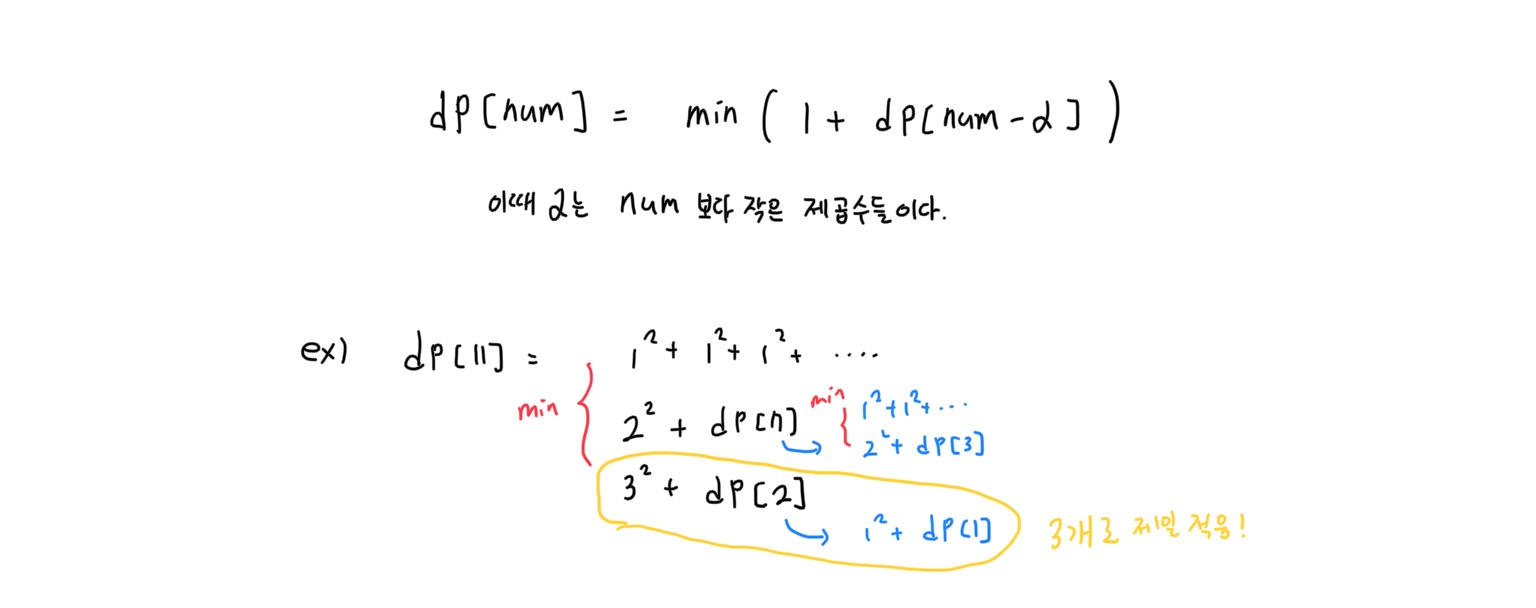 dp[num] = min ( 1 + dp[num - α] )
이때 α는 num 보다 작은 제곱수들이다.
ex) dp[11] = 1² + 1² + 1² + ....
min
2² + dp[7] min 1² + 1² + ...
2² + dp[3]
3² + dp[2]
1² + dp[1] 3개로 제일 적음!